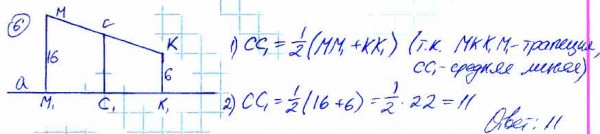 6
M
C
K
16
6
a
M₁
C₁
K₁
1) CC₁ = ½(MM₁ + KK₁) (т.к. MKK₁M₁ - трапеция,
CC₁ - средняя линия)
2) CC₁ = ½(16+6) = ½ · 22 = 11
Ответ: 11